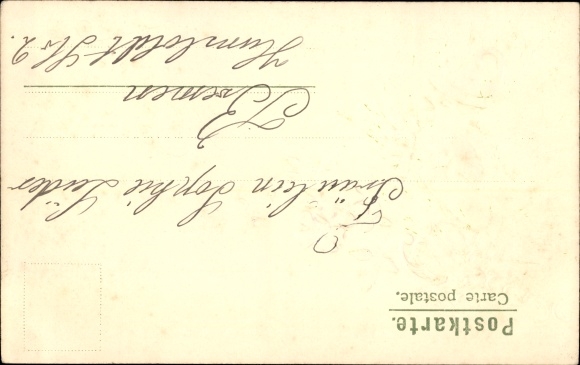 Postkarte.
Carte postale.
Fräulein Sophie Lüder
Bremen
Humboldt Str 2.